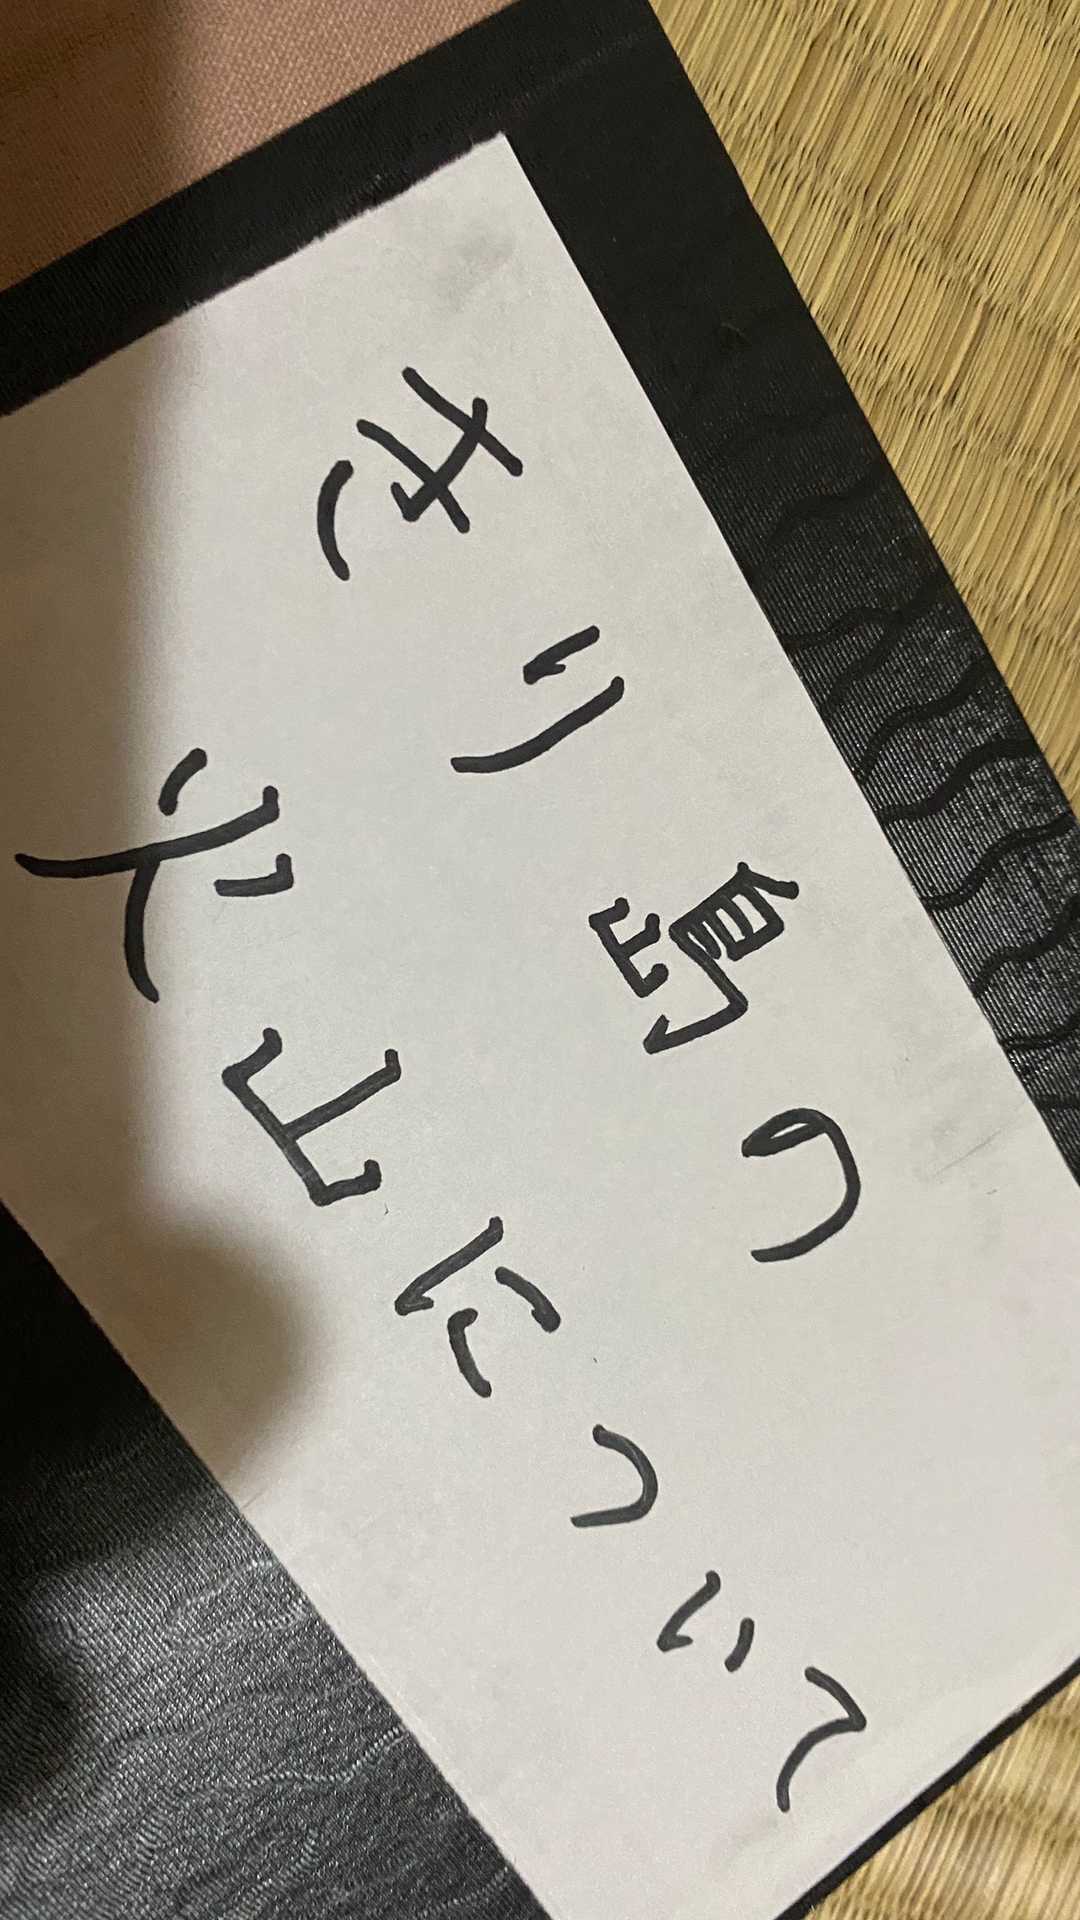 きり島の
火山について